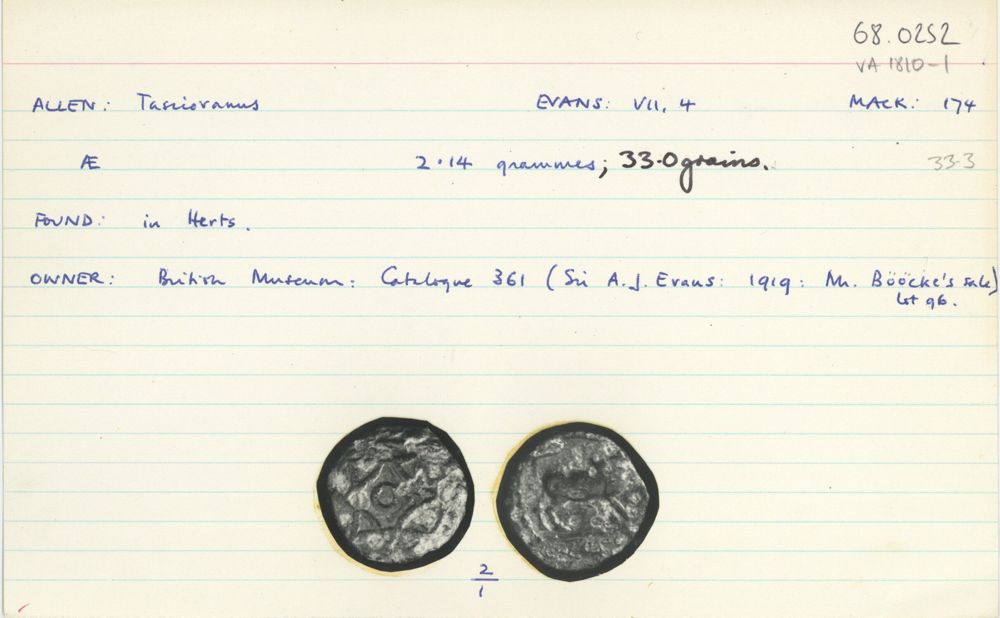 68.0252
VA 1810-1
ALLEN: Tasciovanus EVANS: VII, 4 MACK: 174
Æ 2.14 grammes; 33.0 grains. 33.3
FOUND: in Herts.
OWNER: British Museum: Catalogue 361 (Sir A.J. Evans: 1919: Mr. Bööcke's sale)
Lot 96.
2
1